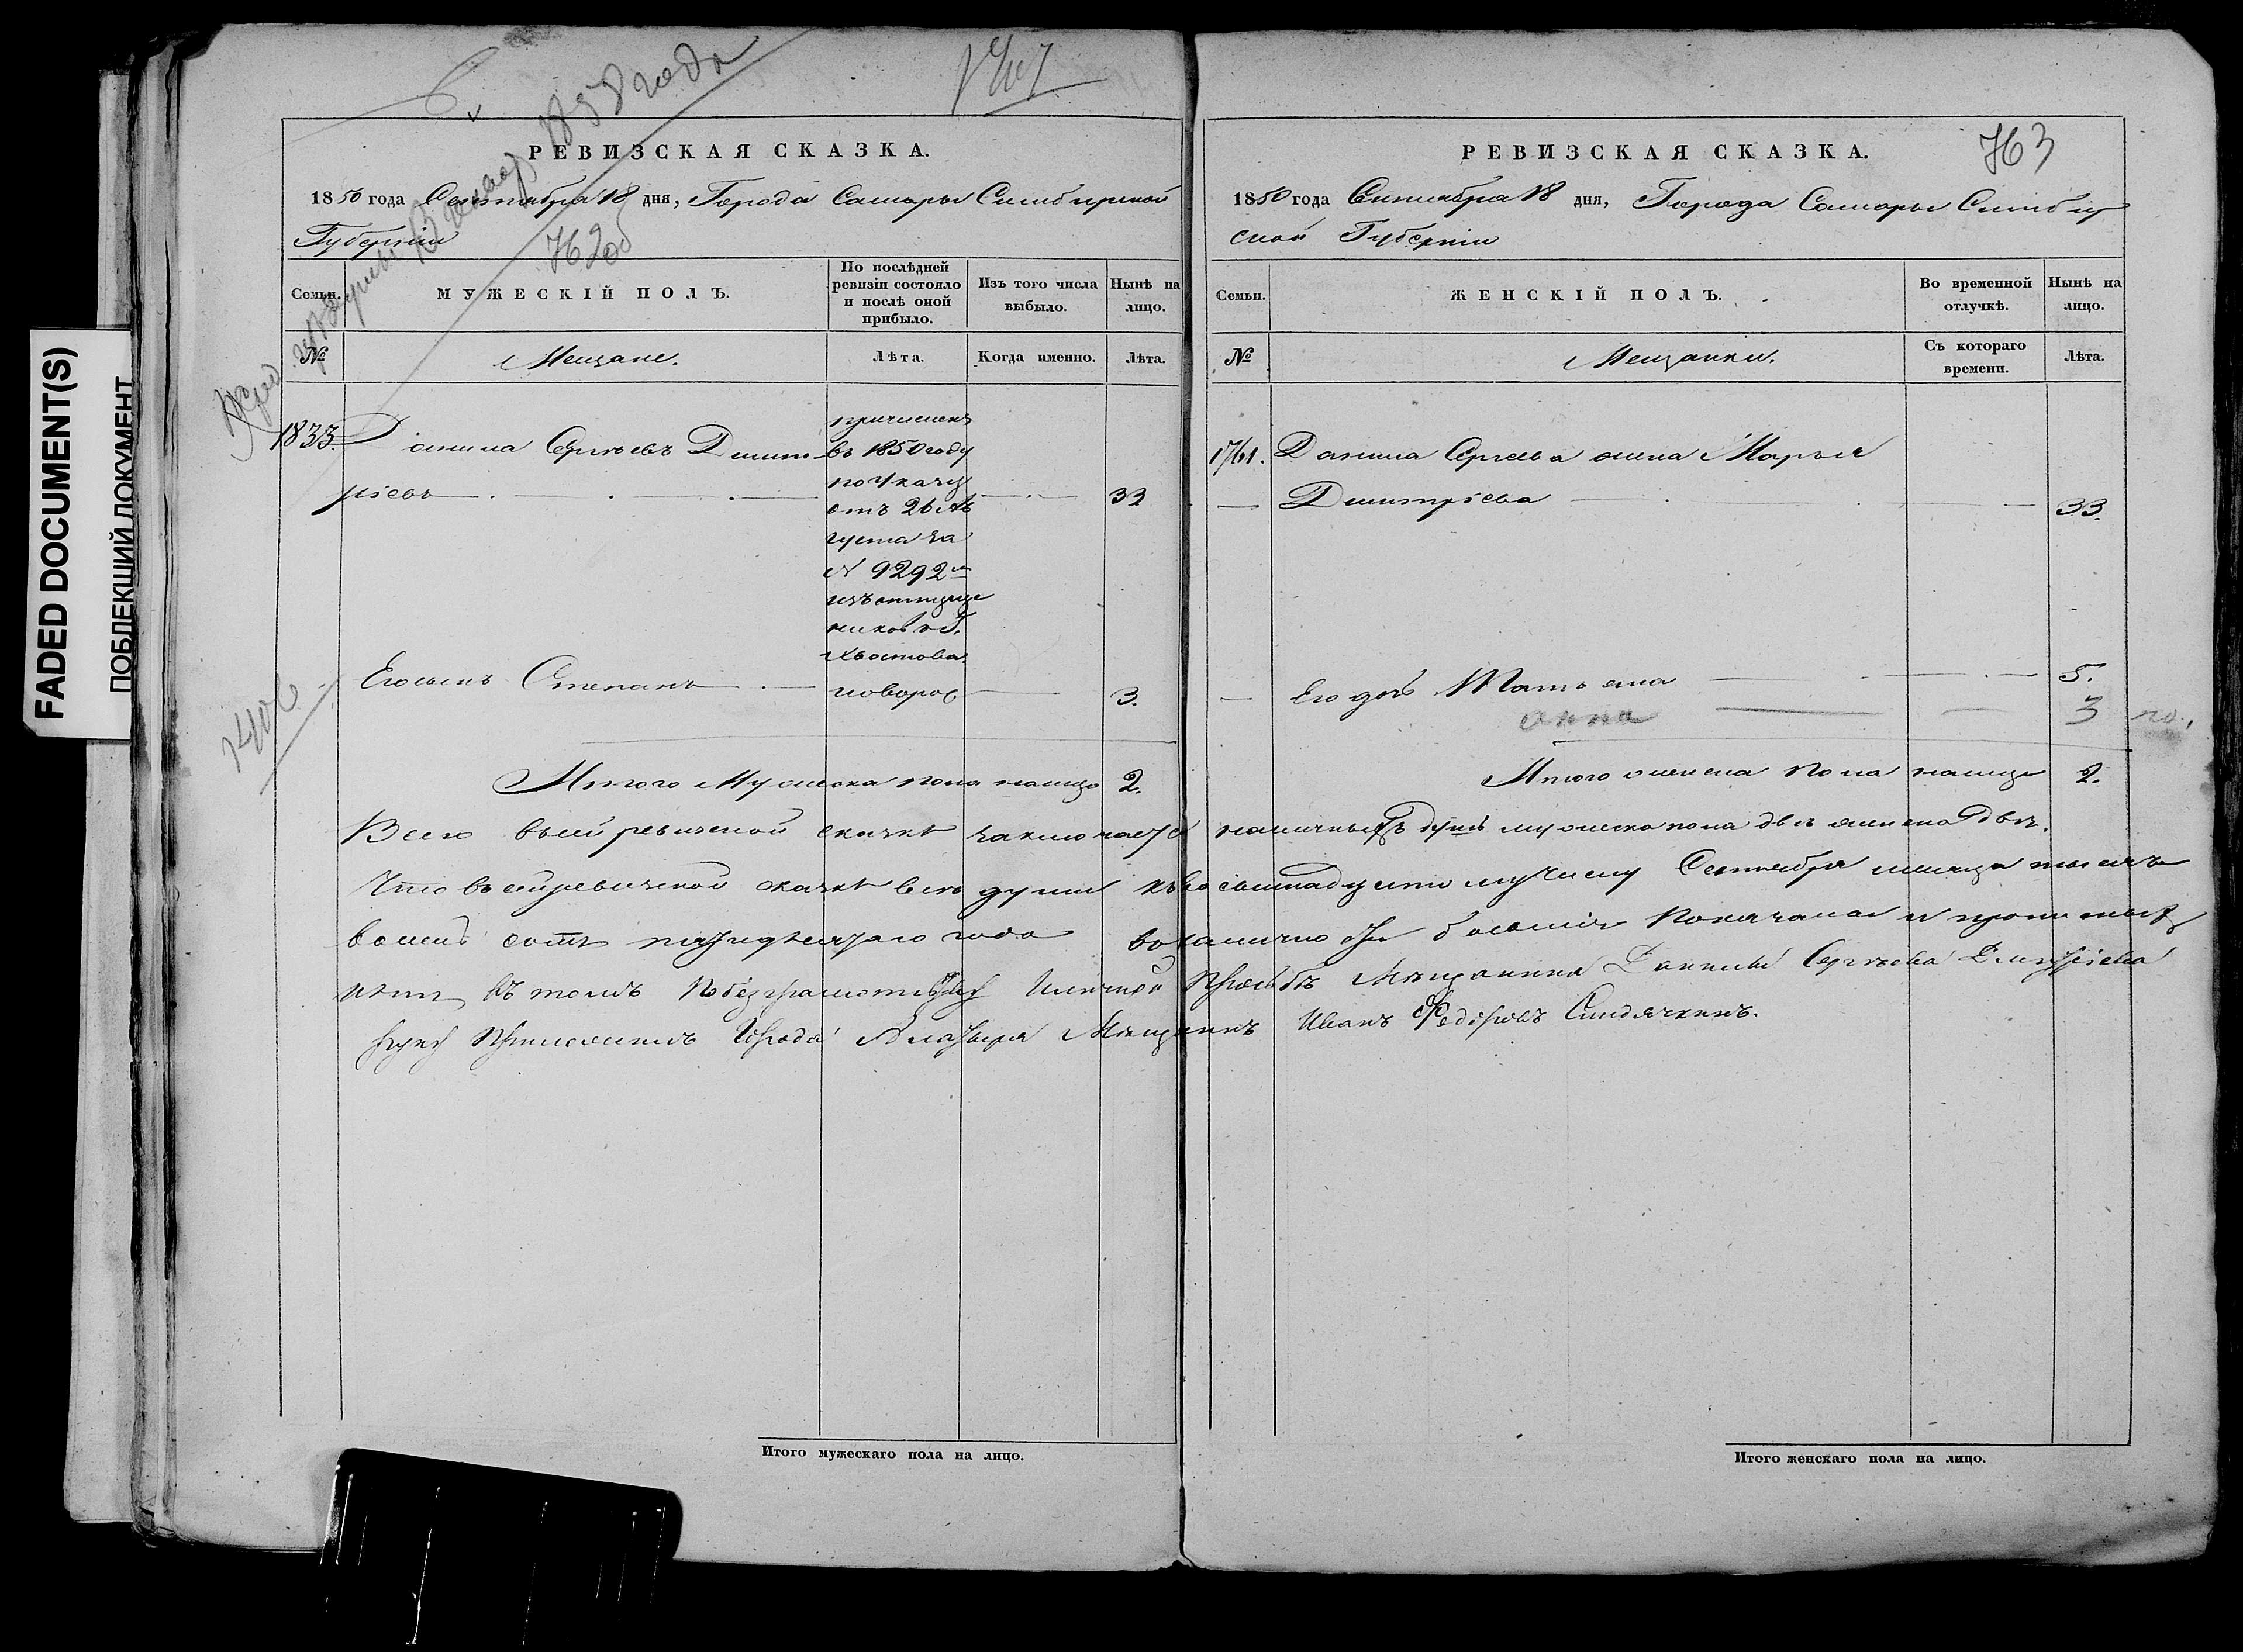 FADED DOCUMENT(S)
ПОБЛЕКШИЙ ДОКУМЕНТ
1858 года
РЕВИЗСКАЯ СКАЗКА.
1850 года Сентября 18 дня, Города Самары Симбирской
Губернии
762 об
Семьи.
МУЖЕСКІЙ ПОЛЪ.
По послѣдней ревизіи состояло и послѣ оной прибыло.
Изъ того числа выбыло.
Нынѣ на лицо.
№
Мещане.
Лѣта.
Когда именно.
Лѣта.
1833.
Данила Сергѣевъ Димит-
ріевъ
причисленъ
въ 1850 году
по указу
отъ 26 Ав
густа за
№ 9292 м
изъ отпуще
никовъ Г.
Хвостова.
33
Его сынъ Степанъ
новорож
3.
Итого Мужеска пола налицо 2.
РЕВИЗСКАЯ СКАЗКА.
763
1850 года Сентября 18 дня, Города Самары Симбир
ской Губерніи
Семьи.
ЖЕНСКІЙ ПОЛЪ.
Во временной отлучкѣ.
Нынѣ на лицо.
№
Мещанки.
Съ котораго времени.
Лѣта.
1761.
Данила Сергеева жена Марья
Димитріева
33.
Его дочь Татьяна
5.
Анна
3
Итого женска пола налицо 2.
Всего в сей ревизской сказке заключается наличныхъ душъ мужеска пола две женска две.
Что в сей ревизской сказке все души къ восемнадцатому числу Сентября месяца тысяча
восемь сотъ пятидесятаго года
въ томъ по безграмотству и личной прозьбѣ Мѣщанина Данилы Сергѣева Димитріева
руку приложилъ Города Алатыря Мѣщанинъ Иванъ Федоровъ
Итого мужескаго пола на лицо.
Итого женскаго пола на лицо.